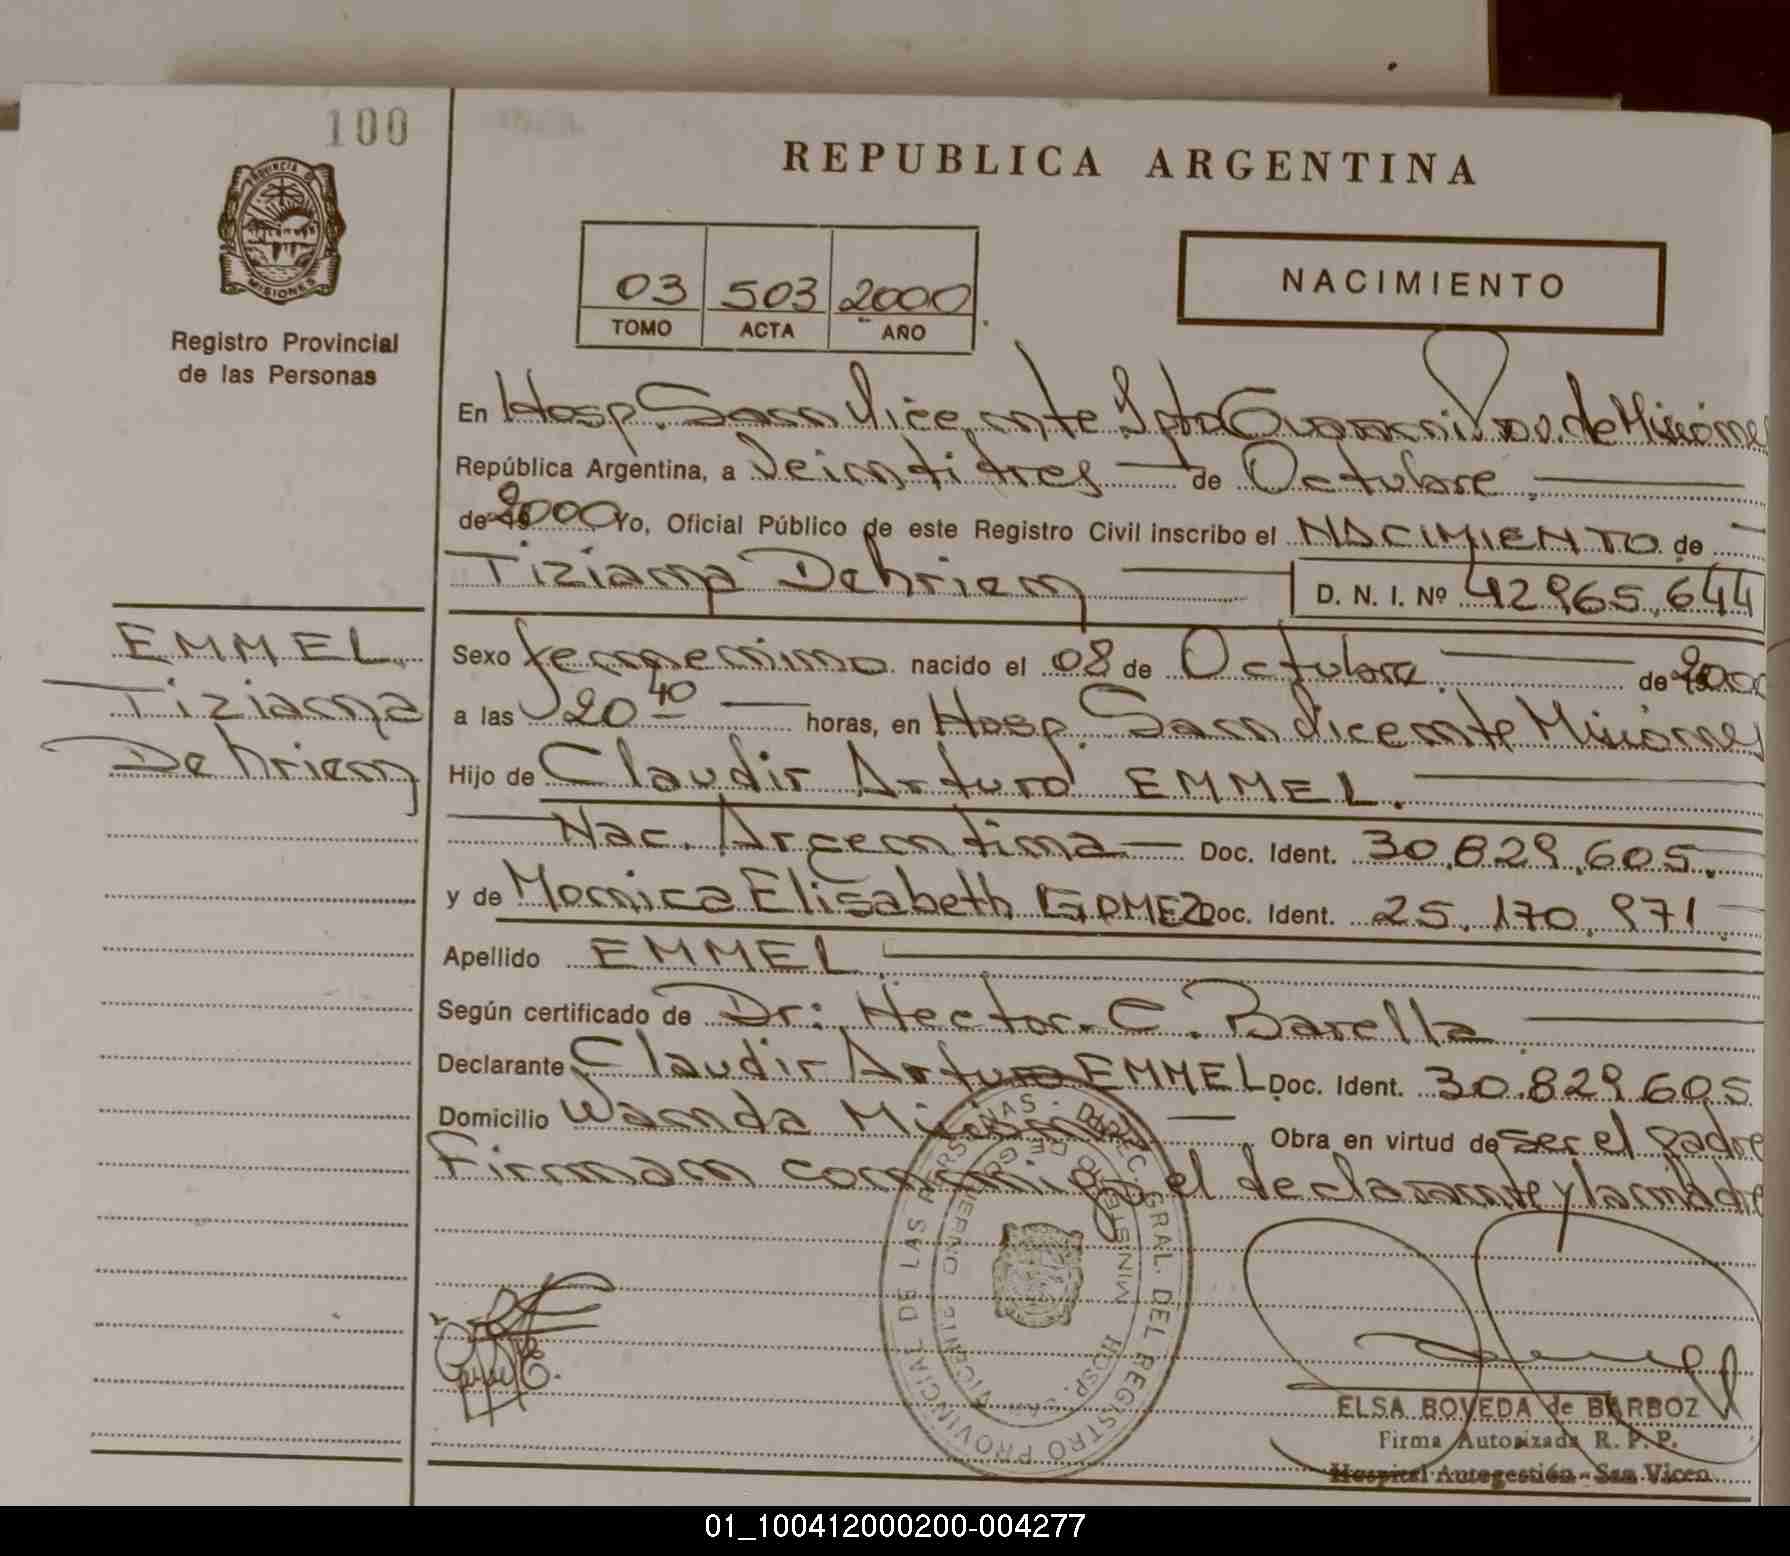 100
REPUBLICA ARGENTINA
PROVINCIA DE
MISIONES
Registro Provincial
de las Personas
03 503 2000
TOMO ACTA AÑO
NACIMIENTO
En Hosp. San Vicente Dpto Guarani Prov. de Misiones
República Argentina, a Veintitres de Octubre
de 2000 Yo, Oficial Público de este Registro Civil inscribo el NACIMIENTO de
Tiziana Dahrien D. N. I. Nº 42.965.644
EMMEL
Tiziana
Dahrien
Sexo femenino nacido el 08 de Octubre de 2000
a las 20 40 horas, en Hosp. San Vicente Misiones
Hijo de Claudir Arturo EMMEL.
Nac. Argentina Doc. Ident. 30.829.605.
y de Monica Elisabeth GOMEZ Doc. Ident. 25.170.971
Apellido EMMEL
Según certificado de Dr: Hector C. Barella
Declarante Claudir Arturo EMMEL Doc. Ident. 30.829.605
Domicilio Wanda Misiones Obra en virtud de ser el padre
Firman conmigo el declarante y la madre
REGISTRO PROVINCIAL DE LAS PERSONAS - DIREC. GRAL. DEL
MINISTERIO DE GOBIERNO
HOSP. SAN VICENTE
ELSA BOVEDA de BARBOZ
Firma Autorizada R. P. P.
Hospital Autogestión - San Vicen
01_100412000200-004277